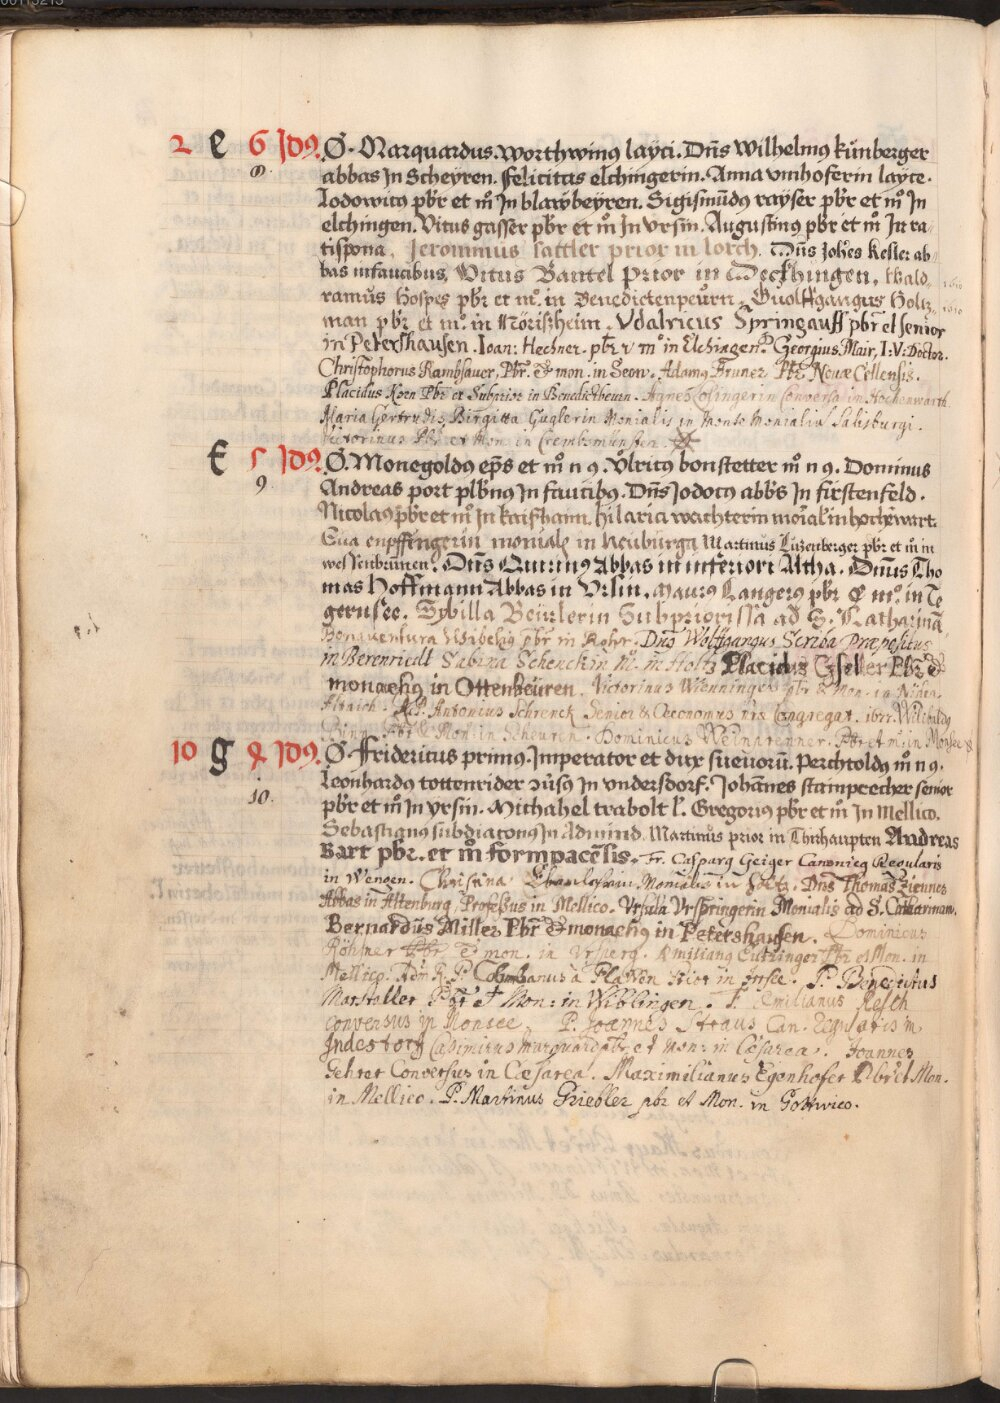 2 e 6 Idꝯ. O. Marquardus. worthwinꝯ layci. Dn̄s wilhelmꝯ kúnberger
8. abbas Jn Scheyren. felicitas elchingerin. Anna vnnhoferin layce.
Jodowicꝯ pb̄r et m͂ Jn blawbeyren. Sigismūdꝯ rayser pb̄r et m͂ Jn
elchingen. Vitus gasser pb̄r et m͂ Jn vrsin. Augustinꝯ pb̄r et m͂ Jn ra-
tispona. Jeronimus sattler prior in lorch. Dn̄s Joh̄es Kesler ab-
bas infaucibus. Vitus Bantel prior in Deckhingen. Wald-
ramus Hospes pb̄r et m͂. in Benedictenpeurn. Guolffgangus Holtz- 1610
man pb̄r et m͂. in Nörisheim. Vdalricus Springauff pb̄r et senior
in Petershausen. Ioan: Hechner. pb̄r m͂ in Elchingen. Georgius Mair, I: V: Doctor.
Christophorus Rambsauer, Pb̄r. & mon. in Seon. Adamꝯ Fruner Pb̄r. Novæ Cellensis.
Placidus Korn Pb̄r et Subprior in Benedictbeurn. Agnes Conversa in Hochenwarth.
Maria Gertrudis, Birgitta Guglerin Monialis in Monte Monialiū Salisburgi.
Victorinus Pb̄r et Mon. in Crembsmünster.
f 5 Idꝯ. O. Monegoldꝯ ep̄s et m͂ n 9. Vlricꝯ bonstetter m͂ n 9. Dominus
9. Andreas port plb̄nꝯ Jn faucibꝯ. Dn̄s Jodocꝯ abb̄s Jn firstenfeld.
Nicolaꝯ pb̄r et m͂ Jn kaisham. hilaria wachterin moīal in hochēwart.
Eua enpffingerin monialꝭ in Neuburga Martinus Luzenberger pb̄r et m͂ in
wessenbrunnen. Dn̄s Quirinꝯ Abbas in inferiori Altha. Dn̄us Tho
mas Hoffmann Abbas in Vrsin. Maurꝯ Langerꝯ pb̄r & m͂. in Te
gernsee. Sybilla Beirlerin Subpriorissa ad S. Katharinā
Bonauentura pb̄r in Rohr. Dn̄s Wolffgangus Scriba Præpositus
in Berenriedt Sabina Schenckin M. in Holtz Placidus Gseller Pb̄r &
monachꝯ in Ottenbeüren. Victorinus Wienninger pb̄r & Mon. in Nider
Altaich. R.P. Antonius Schrenck Senior & Oeconomus nræ Congregat. Wilibaldꝯ
Pb̄r & Mon: in Scheuren. Dominicus Weinprenner. Pb̄r et m͂. in Monsee
10 g 4 Idꝯ. O. Fridericus primꝯ. Jmperator et dux sueuorū. Perchtoldꝯ m͂ n 9.
10. Leonhardꝯ tottenrider Jn vndersdorf. Johānes stainprecher senior
pb̄r et m͂ Jn vrsin. Michahel trabolt l. Gregoriꝯ pb̄r et m͂ Jn Mellico.
Sebastianꝯ subdiaconꝯ Jn Admund. Martinus prior in Thirhaupten Andreas
Bart pb̄r. et m͂ formpacēsis. Fr. Casparꝯ Geiger Canonicꝯ Regularis
in Wengen. Christina Monialis in Holtz. Dn̄s Thomas Ziennes
Abbas in Altenburg, Professus in Mellico. Vrsula Vrspringerin Monialis ad S. Catharinam.
Bernardus Miller Pb̄r & monachꝯ in Petershausen. Dominicus
Röhsner Pb̄r & mon. in Vrsperg. Æmilianꝯ Eutzinger Pb̄r et Mon. in
Mellico. Adm̄ R. P. Columbanus à Platten Prior in Irsee. P. Benedictus
Marstaller Pb̄r et Mon: in Wiblingen. F. Emilianus Resch
conversus in Monsee. P. Joannes Straus Can. Regularis in
Jndestorf Casimirus Marquard pb̄r et Mon: in Cæsarea. Joannes
Gehrer Conversus in Cæsarea. Maximilianus Egenhofer Pb̄r et Mon.
in Mellico. P. Martinus Griebler pb̄r et Mon. in Gottwico.